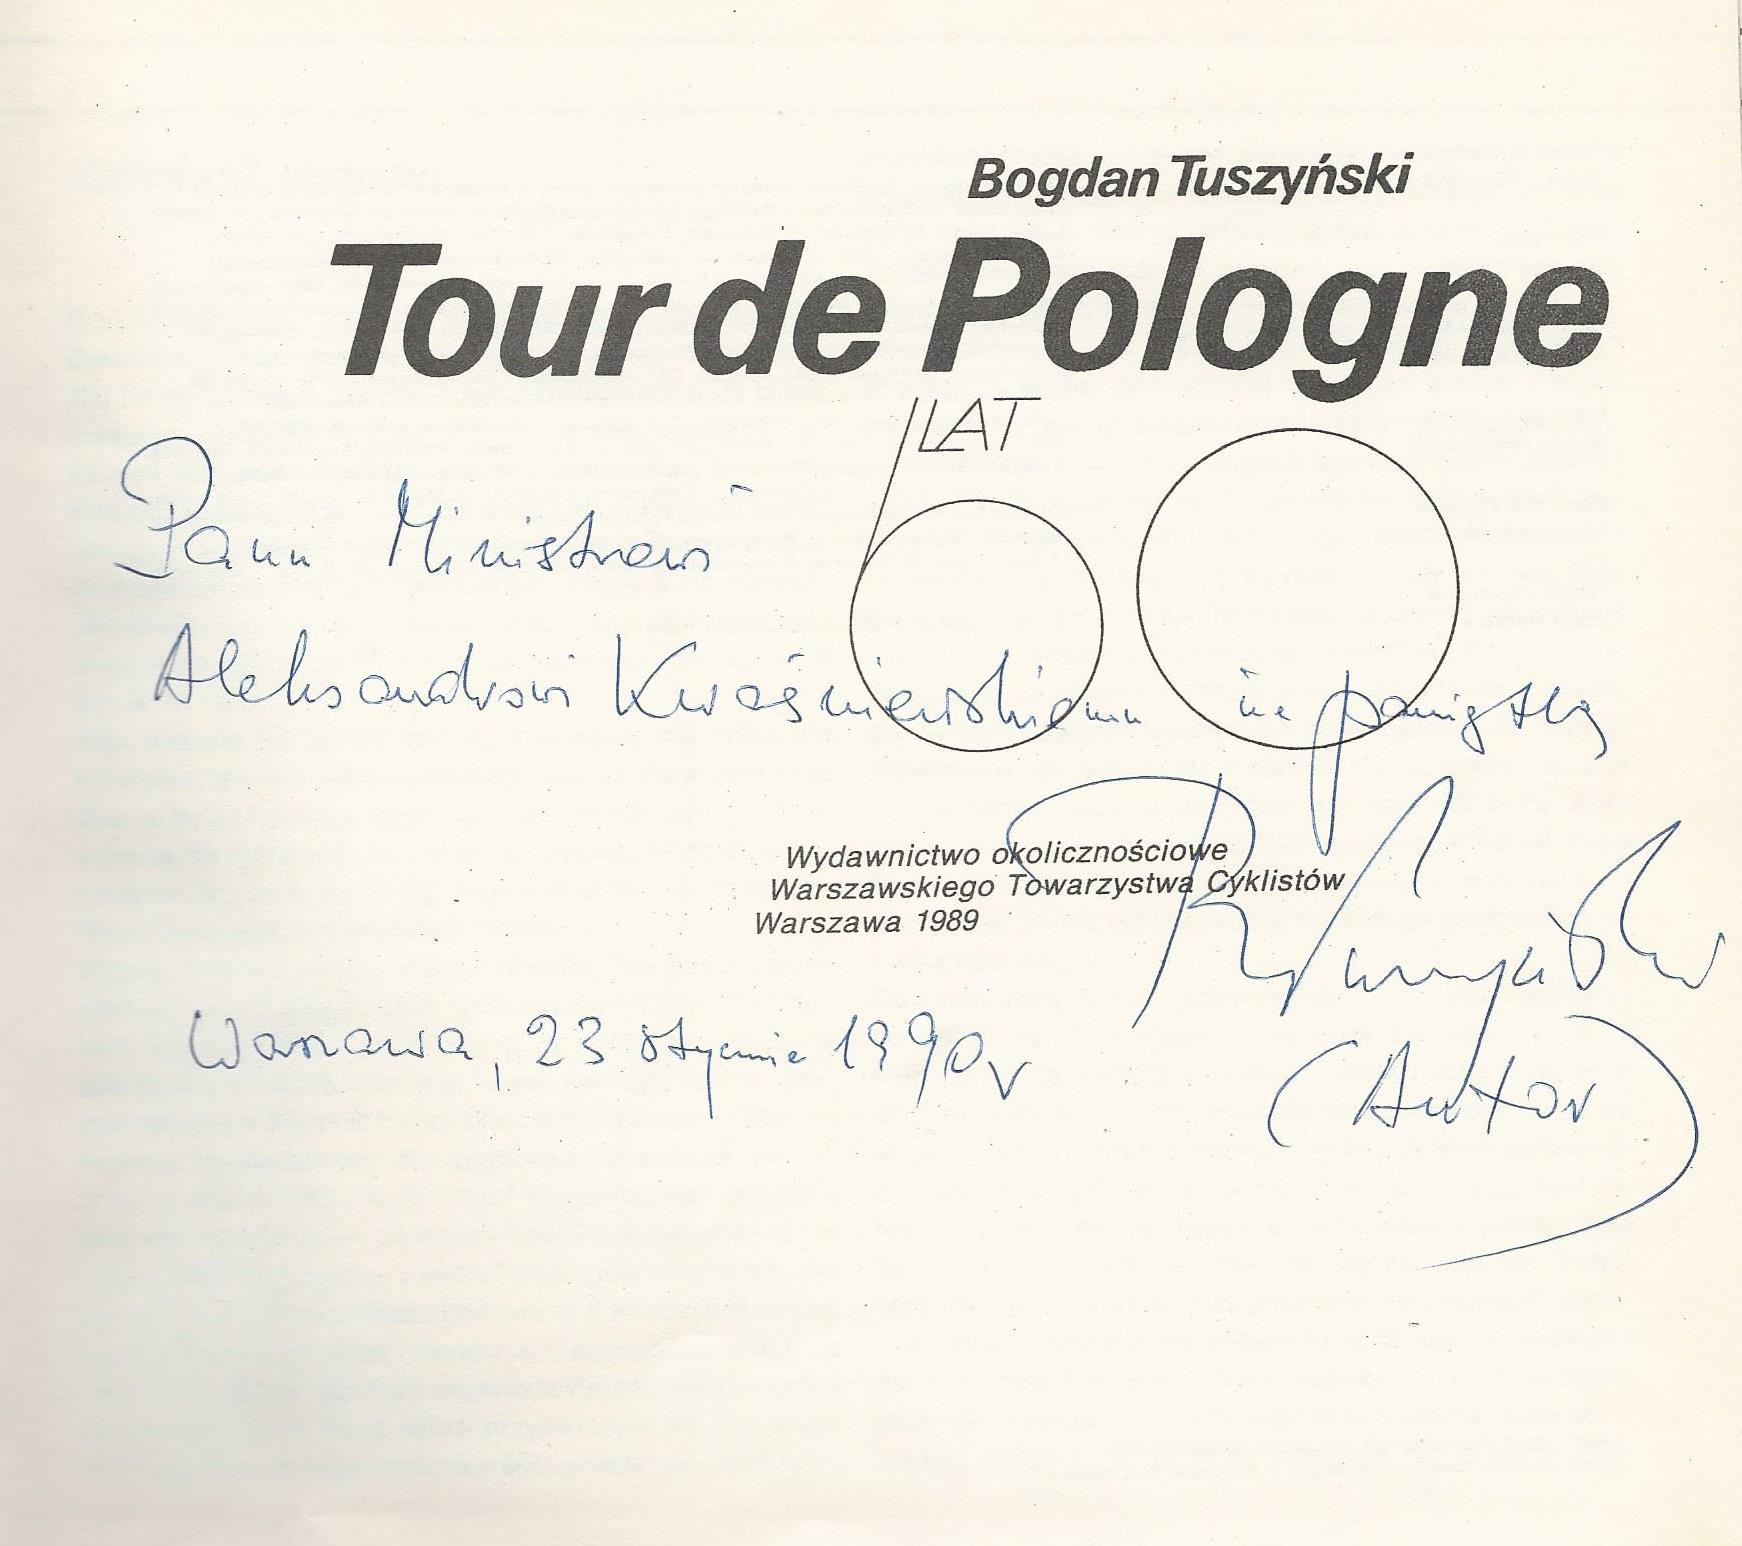 Bogdan Tuszyński
Tour de Pologne
LAT
60
Panu Ministrowi
Aleksandrowi Kwaśniewskiemu na pamiątkę
Wydawnictwo okolicznościowe
Warszawskiego Towarzystwa Cyklistów
Warszawa 1989
BTuszyński
Warszawa, 23 stycznia 1990 r
(Autor)